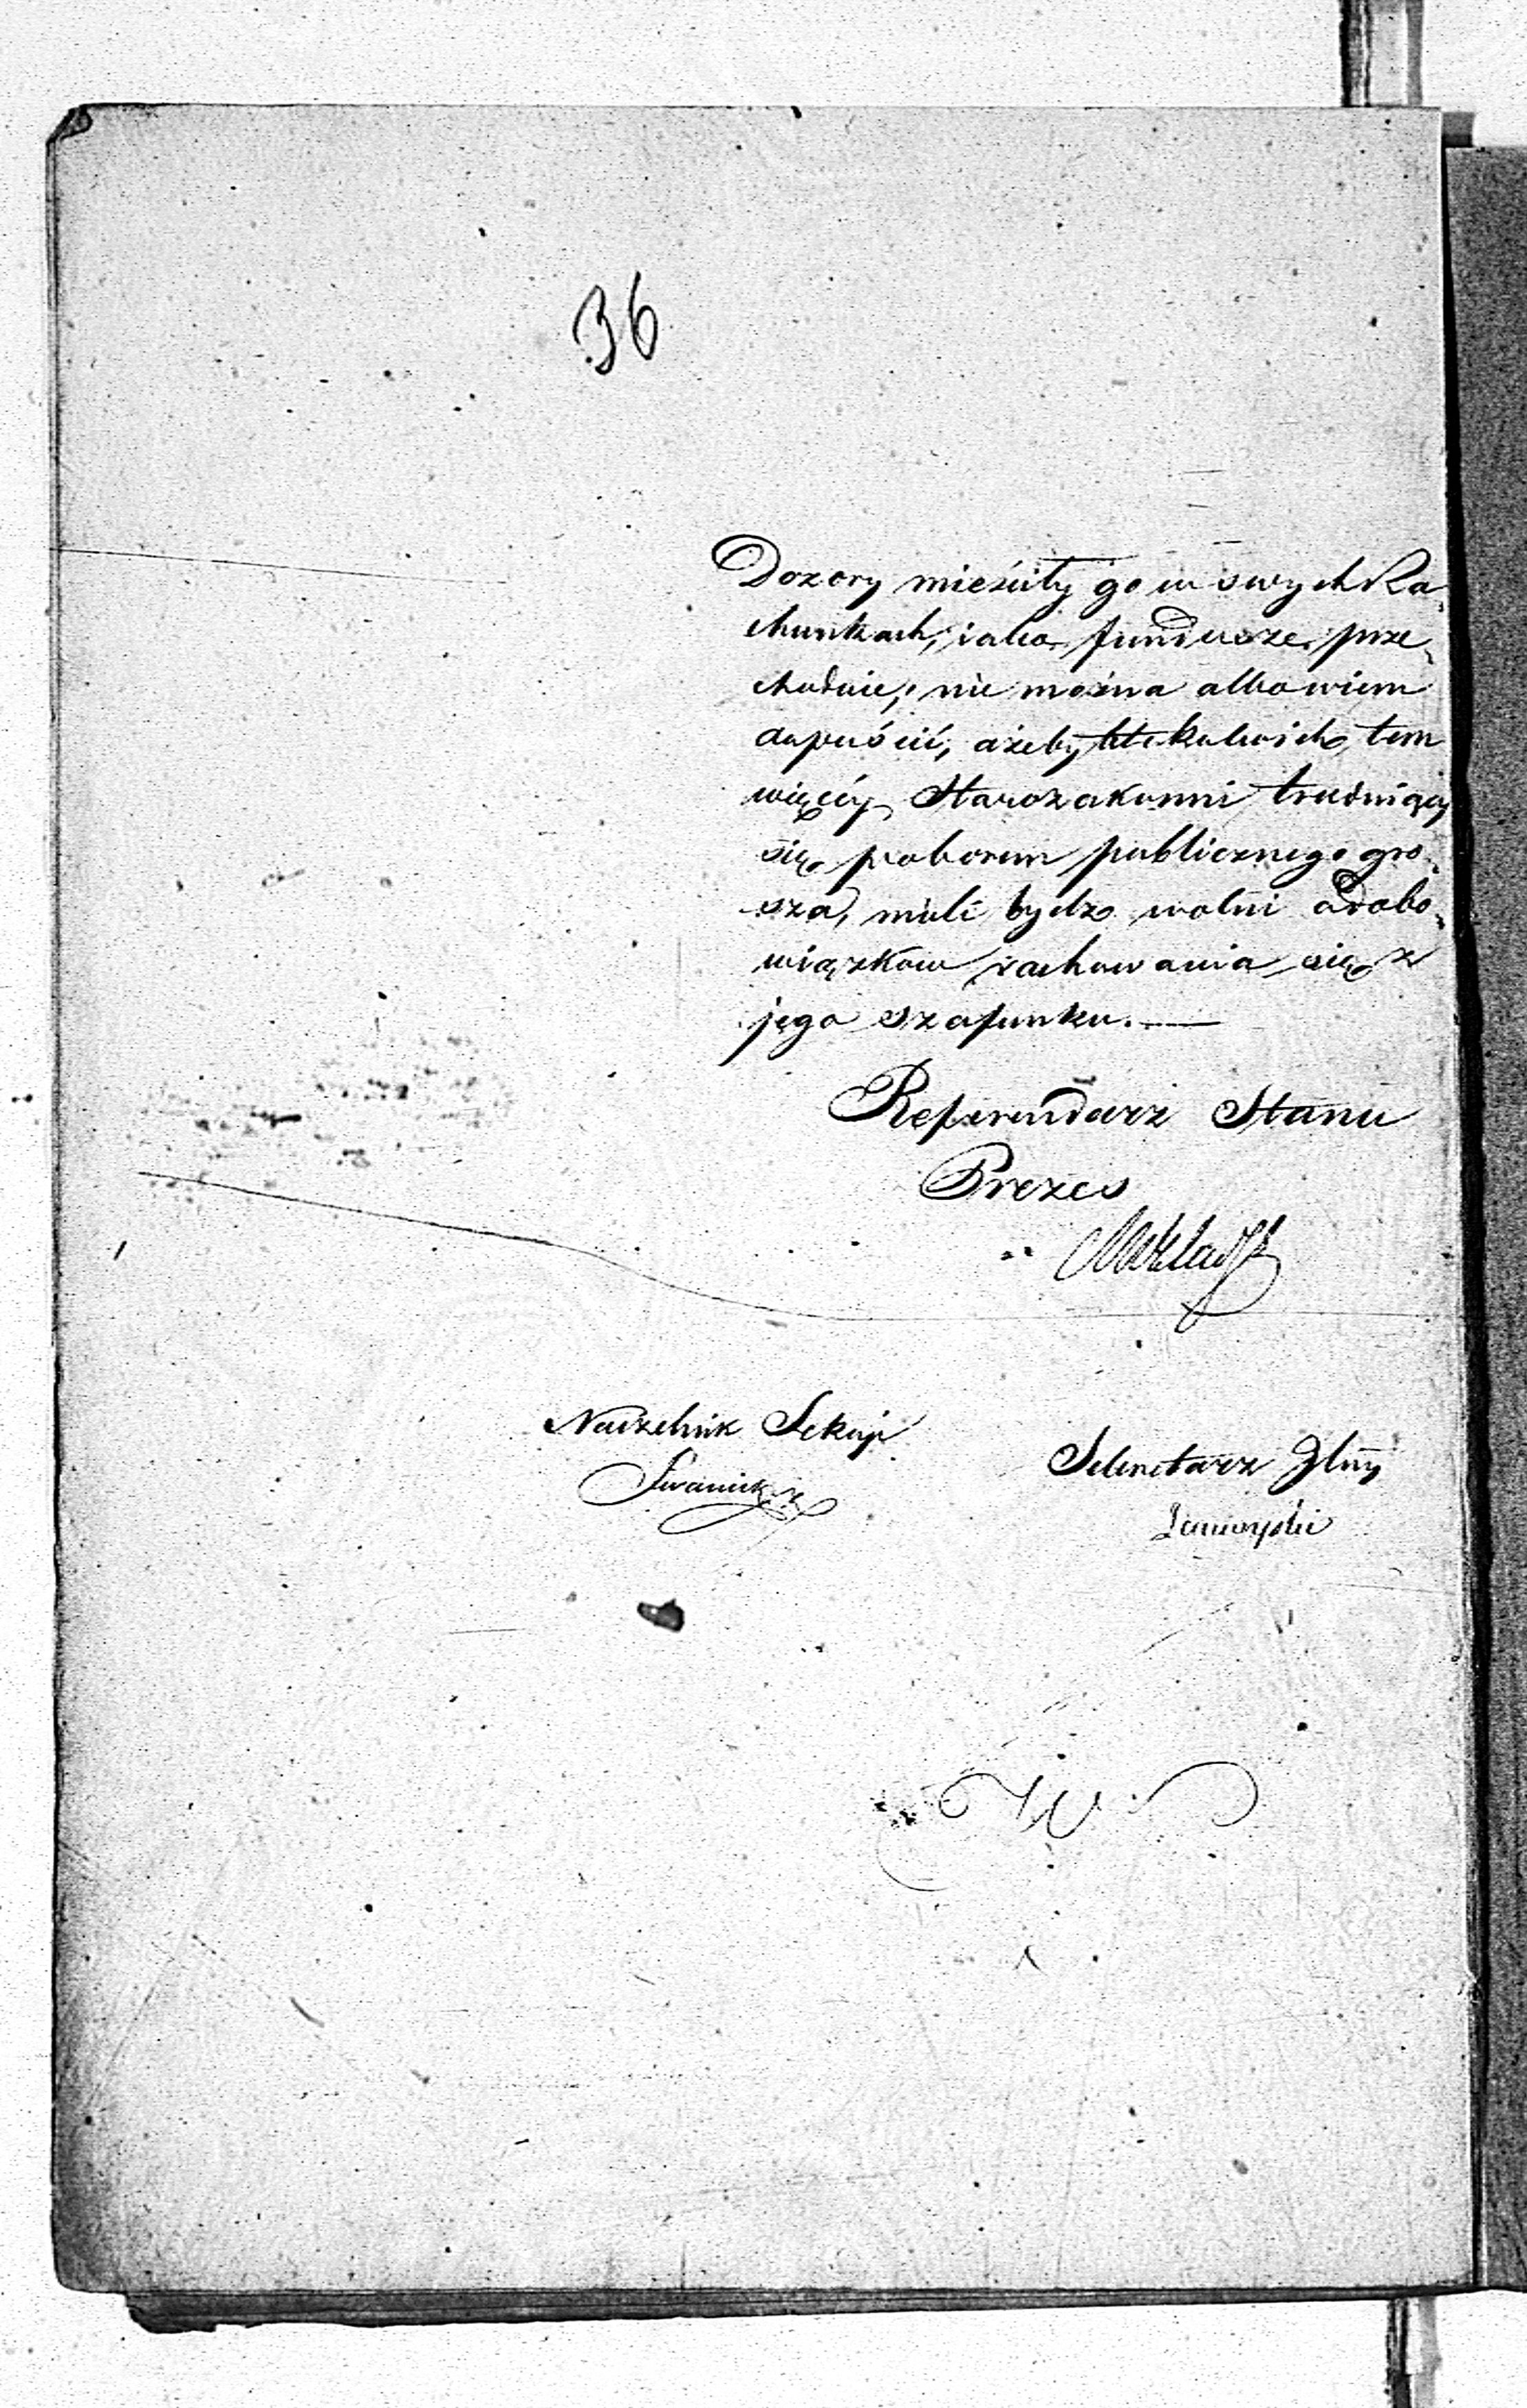 36
Dozory mieściły go w swych Ra-
chunkach, iako fundusze prze-
chodnie, nie można albowiem
dopuścić, ażeby ktokolwiek, tem
więcéy Starozakonni trudniący
się poborem publicznego gro-
sza, mieli bydz wolni od obo-
wiązków rachowania się z
jego szafunku.
Referendarz Stanu
Prezes
Naczelnik Sekcyi
Sekretarz Jlny